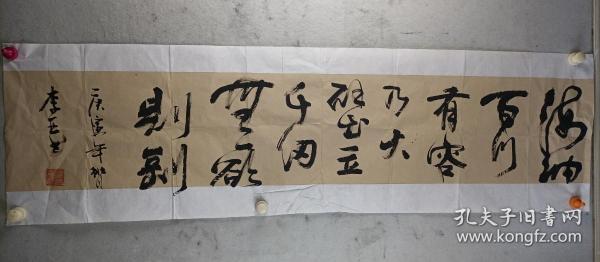 海納
百川
有容
乃大
壁立
千仞
無欲
則剛
庚寅年
李
孔夫子旧书网
www.kongfz.com